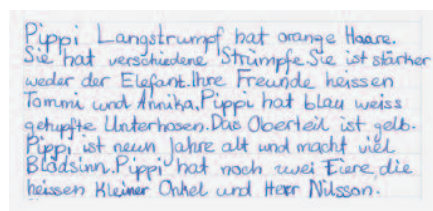 Pippi Langstrumpf hat orange Haare.
Sie hat verschiedene Strümpfe. Sie ist stärker
weder der Elefant. Ihre Freunde heissen
Tommi und Annika. Pippi hat blau weiss
getupfte Unterhosen. Das Oberteil ist gelb.
Pippi ist neun Jahre alt und macht viel
Blödsinn. Pippi hat noch zwei Tiere, die
heissen Kleiner Onkel und Herr Nilsson.